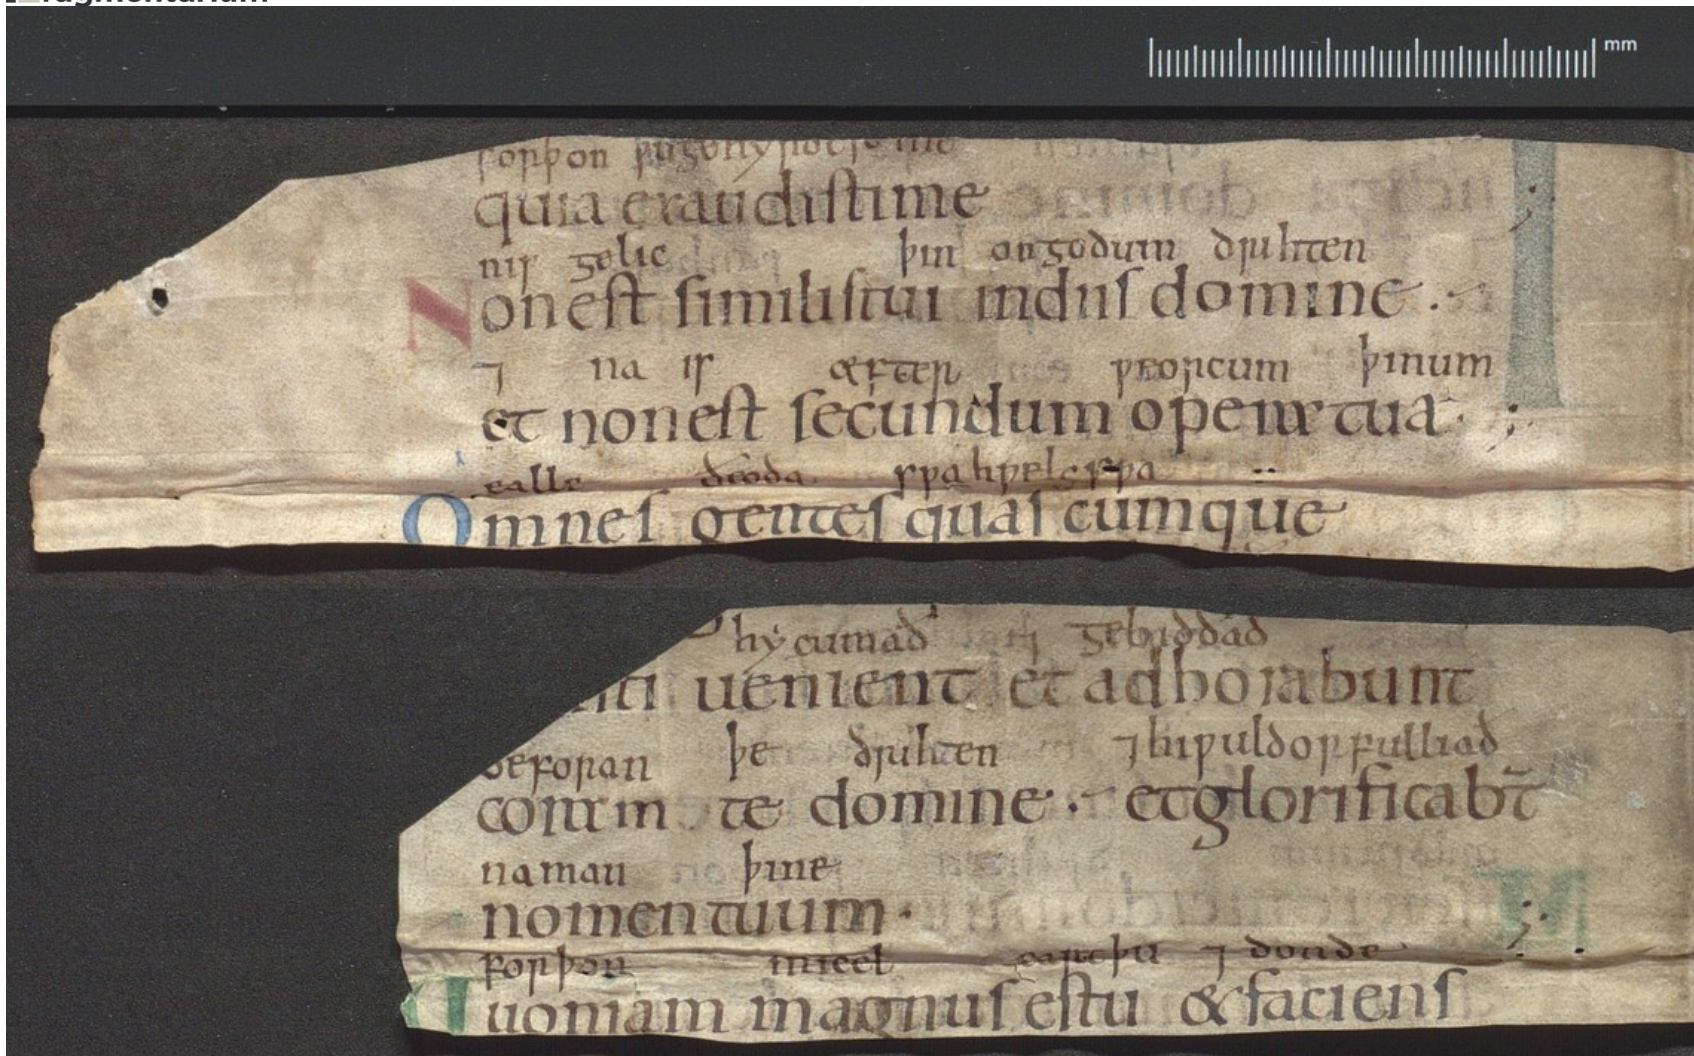 forþon þu gehyrdest me
quia exaudistime
nis gelic þin on godum drihten
Nonest similistui indiis domine
⁊ na is æfter weorcum þinum
et nonest secundum opera tua
ealle ðeoda swa hwelce swa
Omnes gentes quascumque
hy cumað ⁊ gebiddað
uenient et adhorabunt
beforan þe drihten ⁊ hi wuldorfulliað
coram te domine · et glorificabt̄
naman þine
nomen tuum ·
forþon micel eart þu ⁊ donde
uoniam magnus estu & faciens
mm